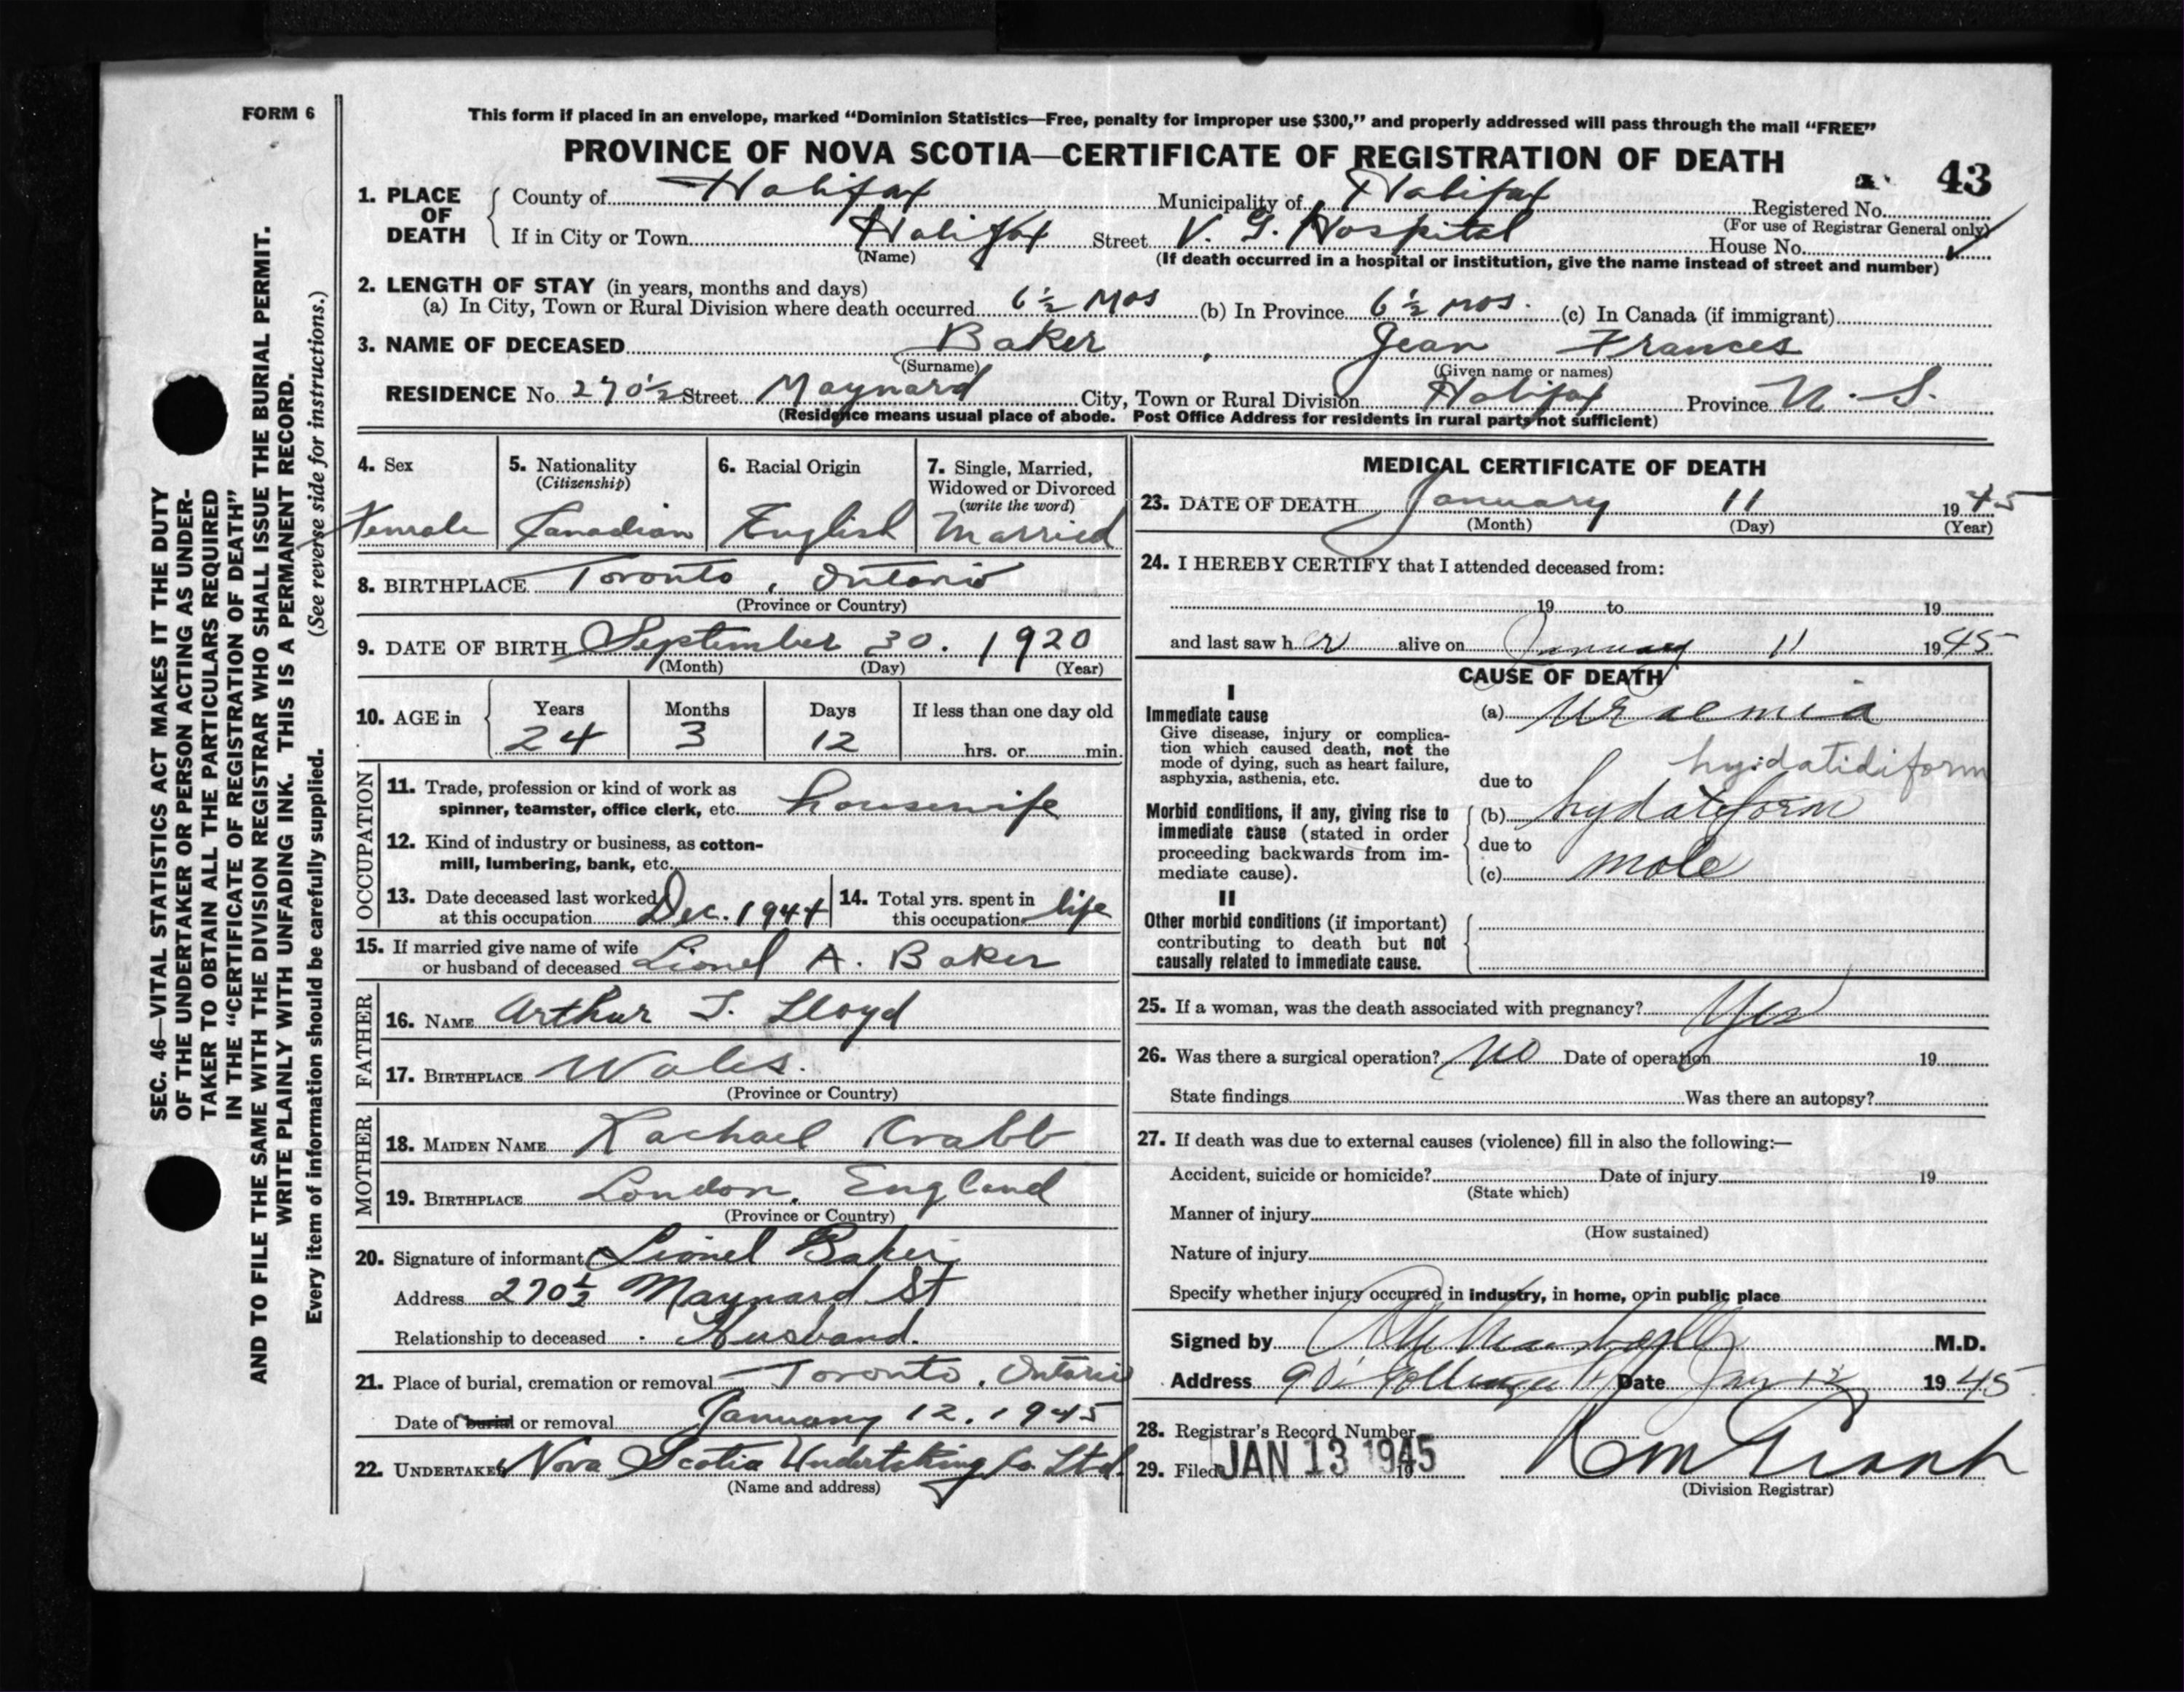 FORM 6
This form if placed in an envelope, marked “Dominion Statistics—Free, penalty for improper use $300,” and properly addressed will pass through the mail “FREE”
PROVINCE OF NOVA SCOTIA—CERTIFICATE OF REGISTRATION OF DEATH
43
1. PLACE OF DEATH
County of Halifax Municipality of Halifax Registered No.
(For use of Registrar General only)
If in City or Town Halifax Street V. G. Hospital House No.
(Name) (If death occurred in a hospital or institution, give the name instead of street and number)
2. LENGTH OF STAY (in years, months and days)
(a) In City, Town or Rural Division where death occurred 6 ½ Mos (b) In Province 6 ½ mos. (c) In Canada (if immigrant)
3. NAME OF DECEASED Baker, Jean Frances
(Surname) (Given name or names)
RESIDENCE No. 270½ Street Maynard City, Town or Rural Division Halifax Province N. S.
(Residence means usual place of abode. Post Office Address for residents in rural parts not sufficient)
4. Sex
Female
5. Nationality
(Citizenship)
Canadian
6. Racial Origin
English
7. Single, Married,
Widowed or Divorced
(write the word)
Married
8. BIRTHPLACE Toronto, Ontario
(Province or Country)
9. DATE OF BIRTH September 30. 1920
(Month) (Day) (Year)
10. AGE in
Years Months Days If less than one day old
24 3 12 hrs. or min.
OCCUPATION
11. Trade, profession or kind of work as
spinner, teamster, office clerk, etc. housewife
12. Kind of industry or business, as cotton-
mill, lumbering, bank, etc.
13. Date deceased last worked
at this occupation Dec. 1944
14. Total yrs. spent in
this occupation life
15. If married give name of wife
or husband of deceased Lionel A. Baker
FATHER
16. NAME Arthur J. Lloyd
17. BIRTHPLACE Wales.
(Province or Country)
MOTHER
18. MAIDEN NAME Rachael Crabb
19. BIRTHPLACE London, England
(Province or Country)
20. Signature of informant Lionel Baker
Address 270½ Maynard St
Relationship to deceased Husband.
21. Place of burial, cremation or removal Toronto, Ontario
Date of burial or removal January 12. 1945
22. UNDERTAKER Nova Scotia Undertaking Co. Ltd.
(Name and address)
MEDICAL CERTIFICATE OF DEATH
23. DATE OF DEATH January 11 1945
(Month) (Day) (Year)
24. I HEREBY CERTIFY that I attended deceased from:
19 to 19
and last saw her alive on January 11 1945
CAUSE OF DEATH
I
Immediate cause
Give disease, injury or complica-
tion which caused death, not the
mode of dying, such as heart failure,
asphyxia, asthenia, etc.
(a) Uraemia
hyidatidiform
due to
Morbid conditions, if any, giving rise to
immediate cause (stated in order
proceeding backwards from im-
mediate cause).
(b) hydatiform
due to
(c) mole
II
Other morbid conditions (if important)
contributing to death but not
causally related to immediate cause.
25. If a woman, was the death associated with pregnancy? Yes
26. Was there a surgical operation? No Date of operation 19
State findings Was there an autopsy?
27. If death was due to external causes (violence) fill in also the following:—
Accident, suicide or homicide? Date of injury 19
(State which)
Manner of injury
(How sustained)
Nature of injury
Specify whether injury occurred in industry, in home, or in public place
Signed by M.D.
Address Date Jan 12 1945
28. Registrar's Record Number
29. Filed JAN 13 1945 19
(Division Registrar)
SEC. 46—VITAL STATISTICS ACT MAKES IT THE DUTY
OF THE UNDERTAKER OR PERSON ACTING AS UNDER-
TAKER TO OBTAIN ALL THE PARTICULARS REQUIRED
IN THE “CERTIFICATE OF REGISTRATION OF DEATH”
AND TO FILE THE SAME WITH THE DIVISION REGISTRAR WHO SHALL ISSUE THE BURIAL PERMIT.
WRITE PLAINLY WITH UNFADING INK. THIS IS A PERMANENT RECORD.
Every item of information should be carefully supplied. (See reverse side for instructions.)